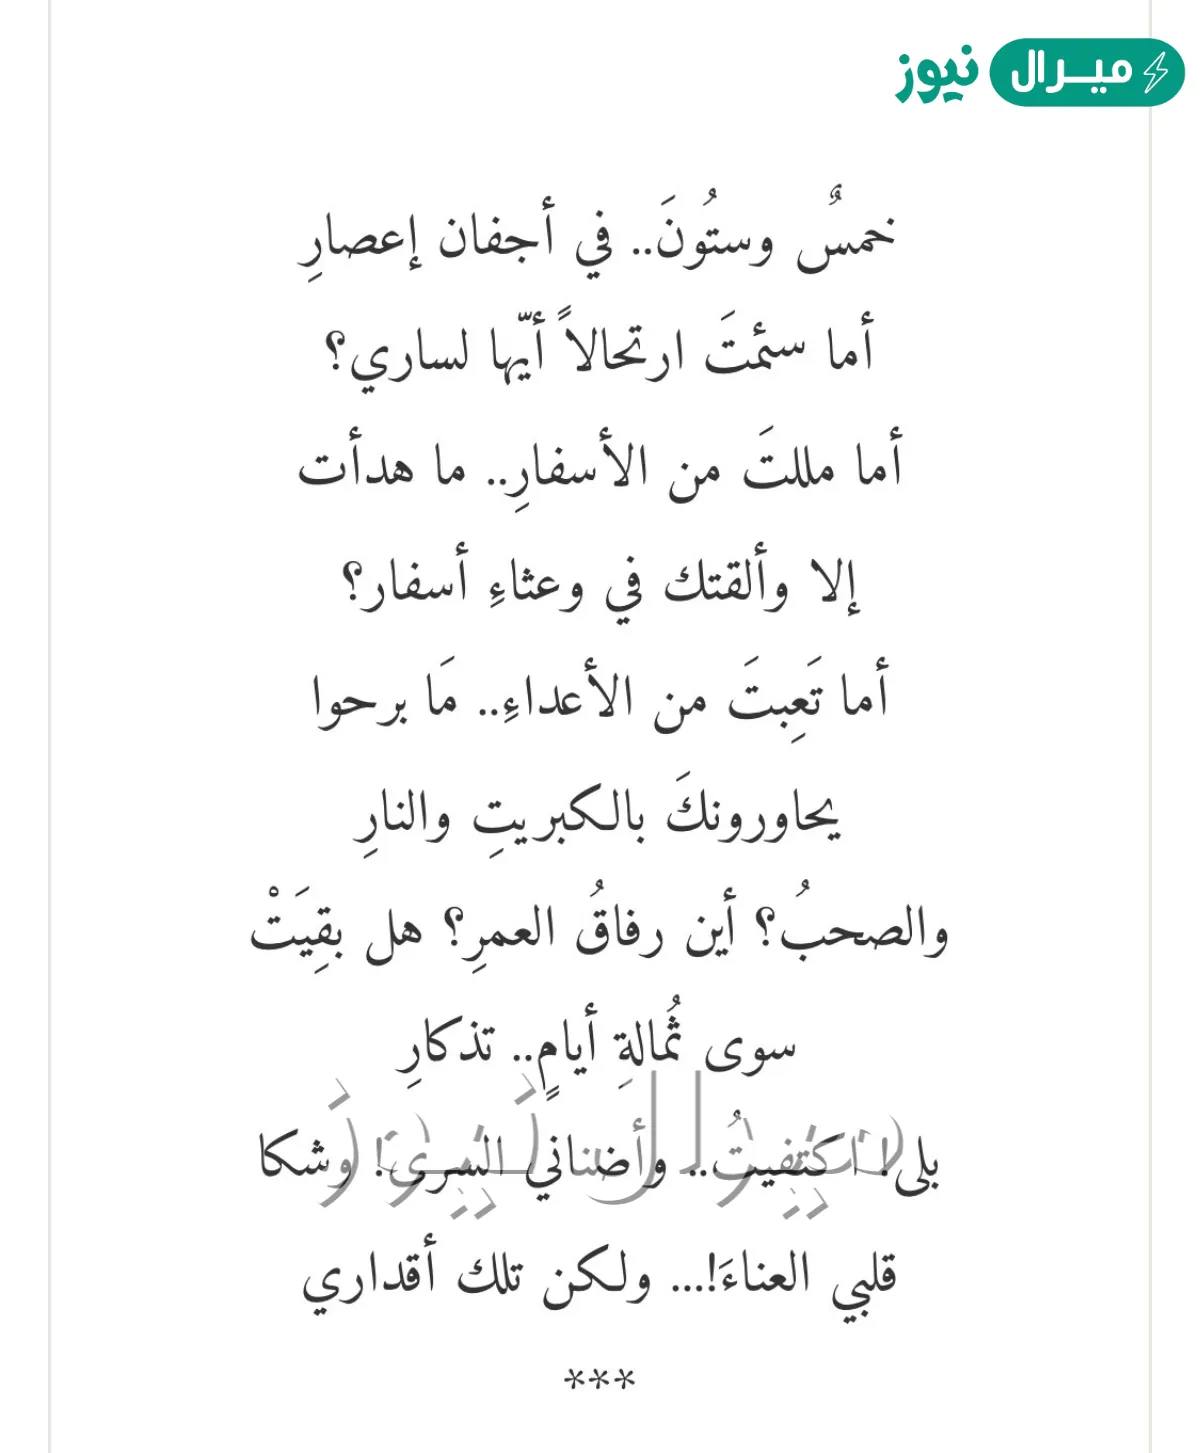 ميرال نيوز
خمسٌ وستُونَ.. في أجفان إعصارِ
أما سئمتَ ارتحالاً أيّها لساري؟
أما مللتَ من الأسفارِ.. ما هدأت
إلا وألقتك في وعثاءِ أسفار؟
أما تَعِبتَ من الأعداءِ.. مَا برحوا
يحاورونكَ بالكبريتِ والنارِ
والصحبُ؟ أين رفاقُ العمرِ؟ هل بقِيَتْ
سوى ثُمالةِ أيامٍ.. تذكارِ
ميرال نيوز
بلى! اكتفيتُ.. وأضناني السرى! وشكا
قلبي العناءَ!... ولكن تلك أقداري
***